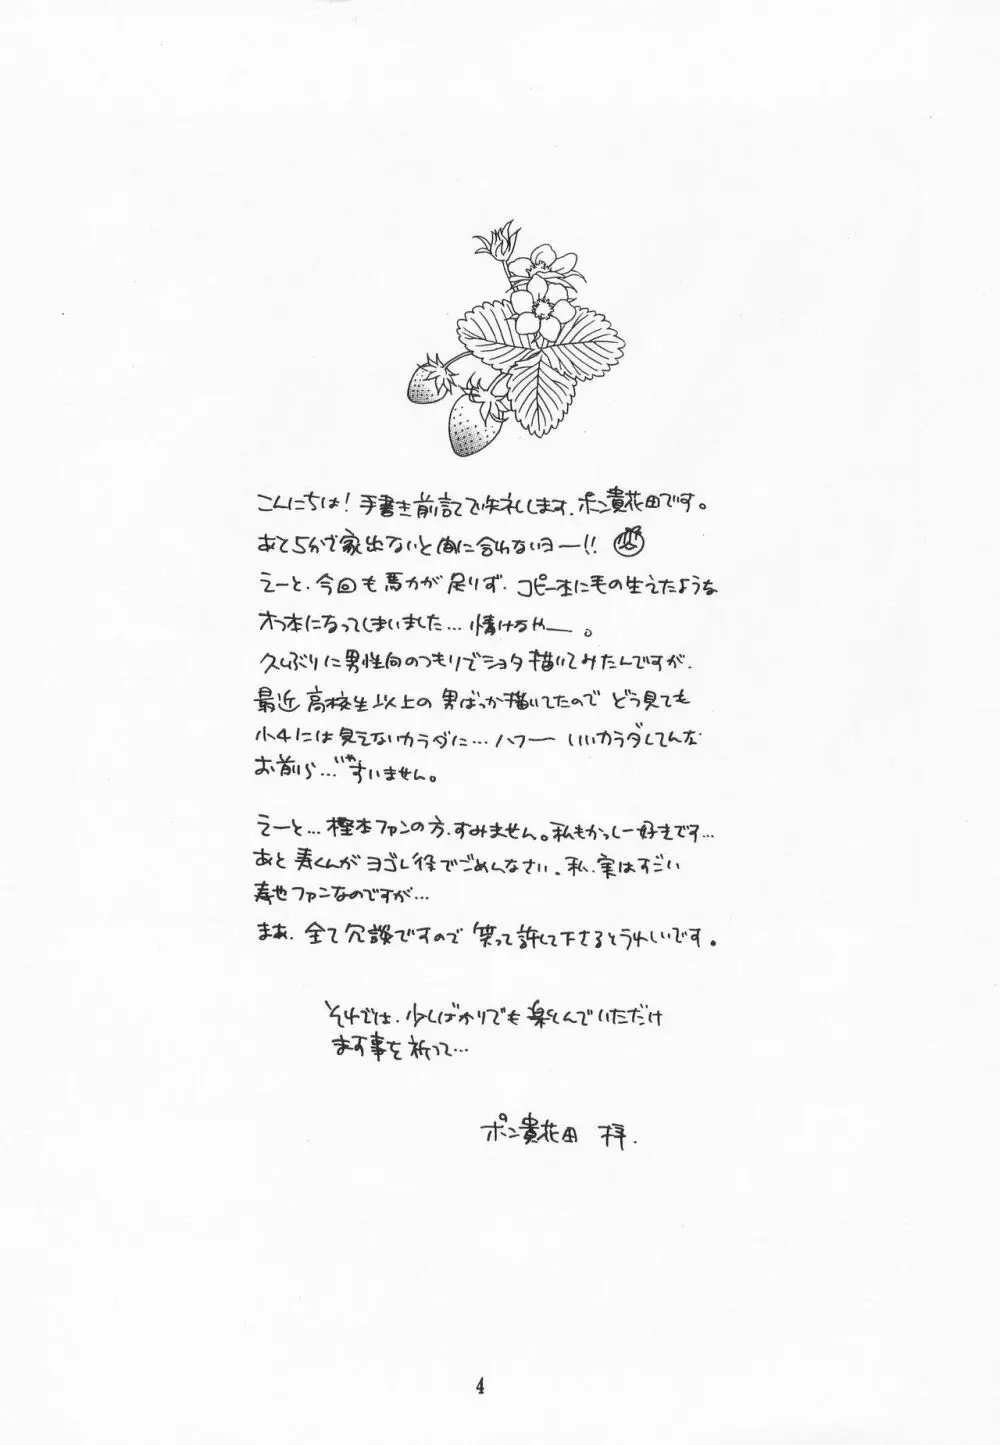 こんにちは！手書き前記で失礼します、ポン貴花田です。
あと5分で家出ないと間に合わないヨー!!
えーと、今回も馬力が足りず、コピー本に毛の生えたような
オフ本になってしまいました…情けなやー。
久しぶりに男性向のつもりでショタ描いてみたんですが、
最近高校生以上の男ばっか描いてたので どう見ても
小4には見えないカラダに…ハフー いいカラダしてんな
お前ら…いやすいません。
えーと…樫本ファンの方、すみません。私もかっしー好きです…
あと寿くんがヨゴレ役でごめんなさい。私、実はすごい
寿也ファンなのですが…
まあ、全て冗談ですので笑って許して下さるとうれしいです。
それでは、少しばかりでも楽しんでいただけ
ます事を祈って…
ポン貴花田 拝.
4